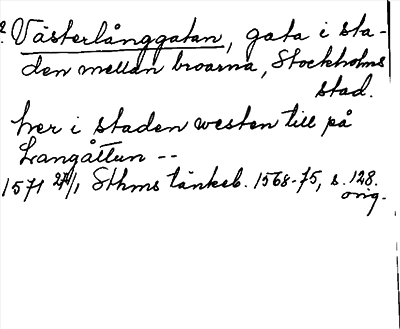 Västerlånggatan, gata i sta-
den mellan broarna, Stockholms
stad.
her i staden westen till på
Langåttun --
1571 27/1 Sthms tänkeb. 1568-75, s. 128.
orig.